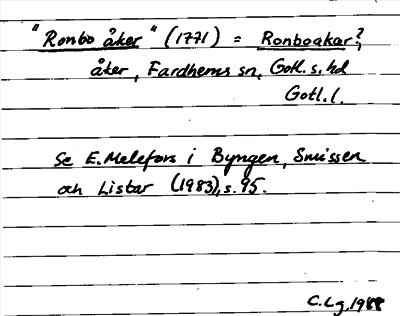 "Ronbo åker" (1771) = Ronboakar?,
åker, Fardhems sn, Gotl. s. hd
Gotl. l.
Se E. Melefors i Byngen, Smissen
och Listar (1983), s. 95.
C. Lg, 1988